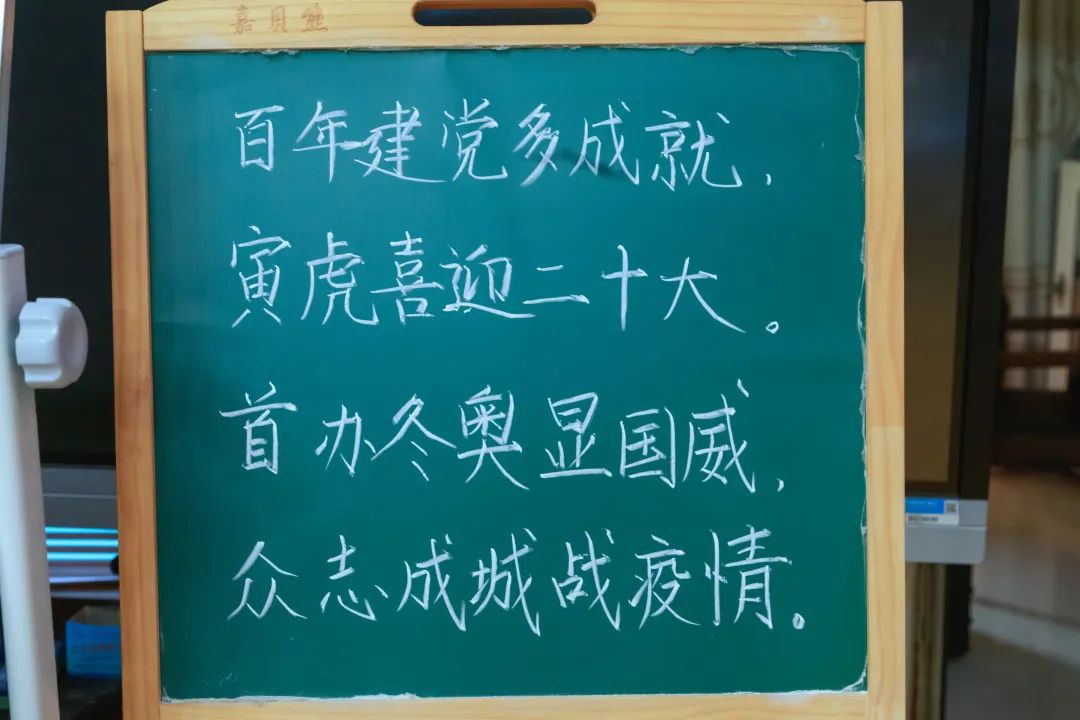 嘉贝熊
百年建党多成就，
寅虎喜迎二十大。
首办冬奥显国威，
众志成城战疫情。